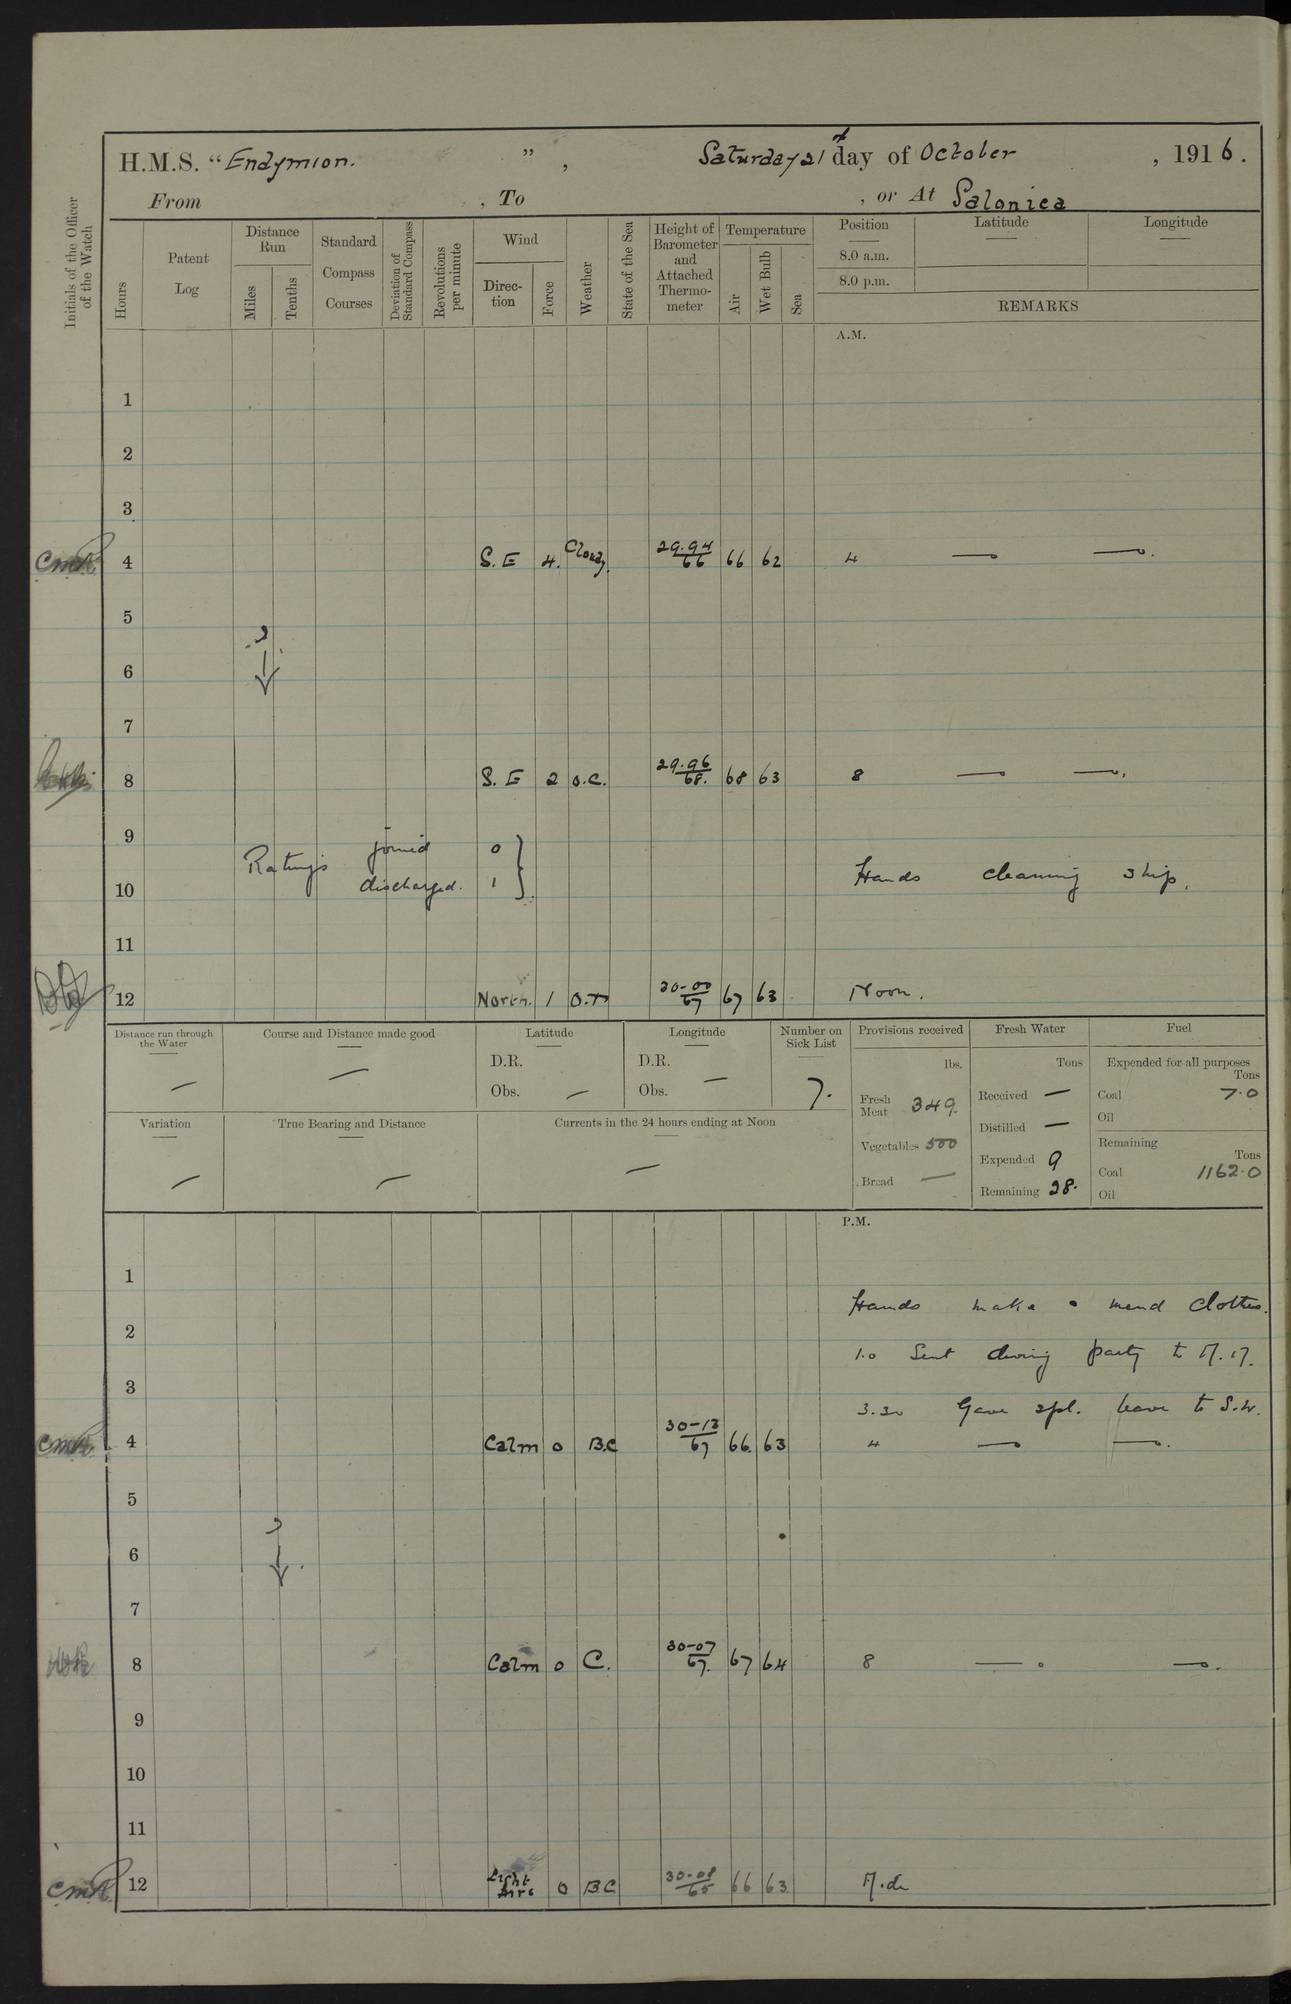 H.M.S. "Endymion.", Saturday 21st day of October, 1916.
From , To , or At Salonica
Initials of the Officer of the Watch
Hours
Patent Log
Distance Run
Miles
Tenths
Standard Compass Courses
Deviation of Standard Compass
Revolutions per minute
Wind
Direction
Force
Weather
State of the Sea
Height of Barometer and Attached Thermometer
Temperature
Air
Wet Bulb
Sea
Position Latitude Longitude
8.0 a.m.
8.0 p.m.
REMARKS
A.M.
1
2
3
4 S.E 4. Cloudy. 29.94/66 66 62 4 — —.
5
6
7
8 S.E 2 O.C. 29.96/68. 68 63 8 — —.
9
Ratings joined 0
discharged. 1
10 Hands cleaning ship.
11
12 North. 1 30-00/67 67 63 Noon.
Distance run through the Water —
Course and Distance made good —
Latitude
D.R.
Obs. —
Longitude
D.R.
Obs. —
Number on Sick List
7.
Provisions received
lbs.
Fresh Meat 349.
Vegetables 500
Bread —
Fresh Water
Tons
Received —
Distilled —
Expended 9
Remaining 28.
Fuel
Expended for all purposes
Tons
Coal 7.0
Oil
Remaining
Tons
Coal 1162.0
Oil
Variation —
True Bearing and Distance —
Currents in the 24 hours ending at Noon —
P.M.
1
Hands make & mend clothes.
2
1.0 Sent diving party to M.17.
3
3.30 Gave spl. leave to
4 Calm 0 B.C 30-13/67 66. 63 4 — —.
5
6
7
8 Calm 0 C. 30-07/67. 67 64 8 — —.
9
10
11
12 Light Airs 0 B.C 30-08/65 66 63. M.dn